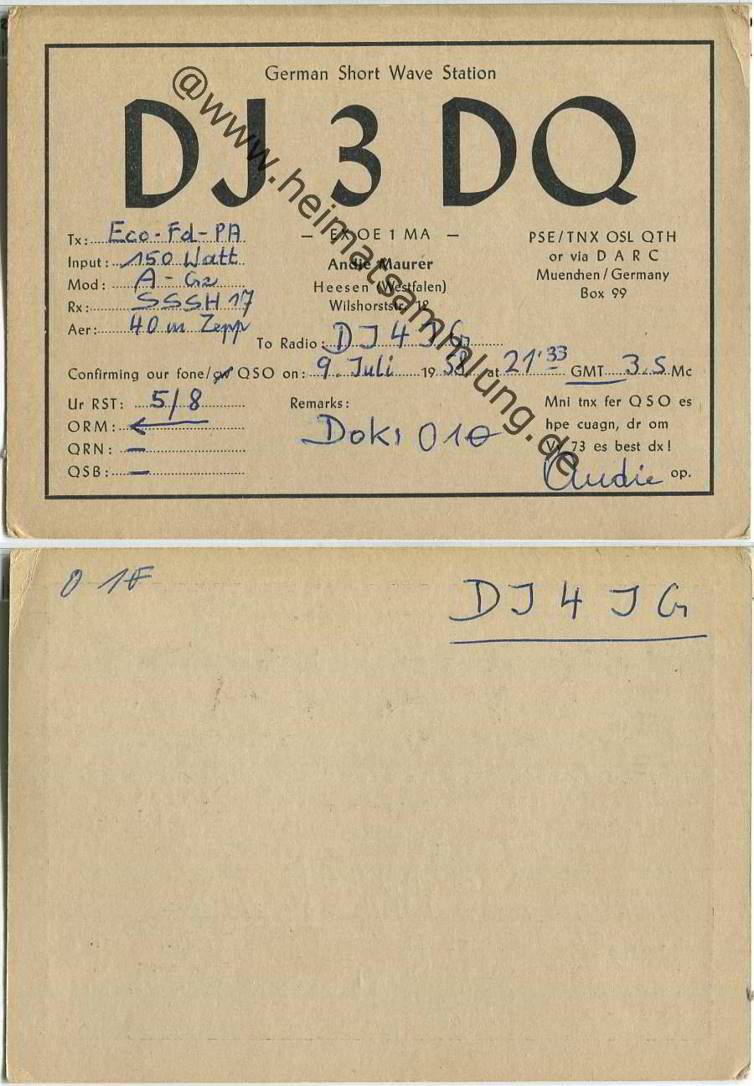 German Short Wave Station
DJ 3 DQ
— EX OE 1 MA —
Andie Maurer
Heesen (Westfalen)
Wilhorststr. 12
PSE/TNX QSL QTH
or via D A R C
Muenchen/Germany
Box 99
Tx: Eco-Fd-PA
Input: 150 Watt
Mod: A-G2
Rx: SSSH 17
Aer: 40 m Zepp
To Radio: DJ4JG
Confirming our fone/cw QSO on: 9. Juli 1958 at 21.33 GMT 3.5 Mc
Ur RST: 5/8
QRM:
QRN: —
QSB: —
Remarks:
Dok: 010
Mni tnx fer QSO es
hpe cuagn, dr om
Vy 73 es best dx!
Andie op.
@www.heimatsammlung.de
DJ4JG